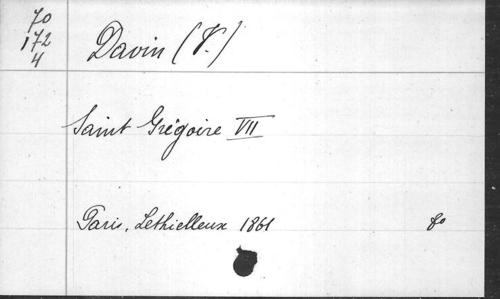 70
172
4
Davin (V.)
Saint Grégoire VII
Paris, Lethielleux 1861 8o